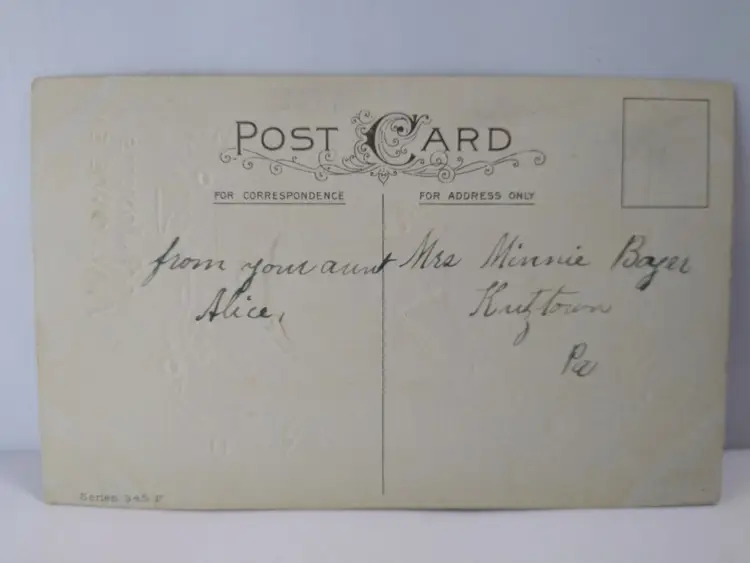 POST CARD
FOR CORRESPONDENCE
FOR ADDRESS ONLY
from your aunt
Alice,
Mrs Minnie Boyer
Kutztown
Pa
Series 345 F